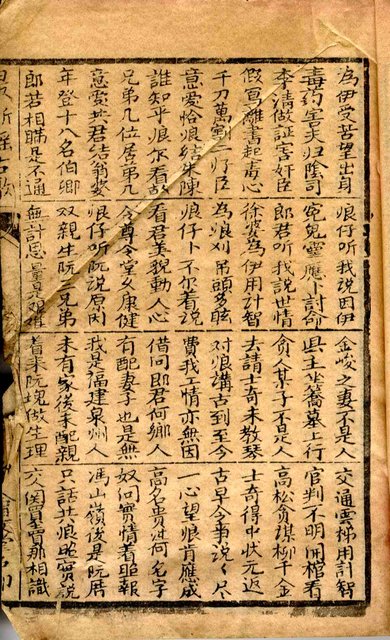 為伊受苦望出身 娘仔听我說因伊 金峻之妻不是人 交通雲梯用計智
毒药害夫归陰司 冤鬼灵應卜討命 主並舊墓上行 官判不明開棺看
李清做証害奸臣 郎君听我說世情 貪人某子不是人 高松貪謀柳千金
假寫離書起毒心 徐婆為伊用計智 去請士奇未教琴 士奇得中状元返
千刀萬剮二疗臣 為娘刈吊頭多眩 对娘溝古到至今 古早今事說〻尽
意愛恰娘結朱陳 娘仔卜不尔看說 費我工情亦無因 一心望娘肯應成
誰知乎娘尔看故 看君美貌動人心 借问郎君何鄉人 高名貴姓何名字
兄弟几位居第几 令尊令堂久康健 有配妻子也是無 奴问實情着照報
意愛共君結翁婆 娘仔听阮說原因 我是福建泉州人 馮山嶺後是阮厝
年登十八名伯卿 双親生阮三兄弟 未有家後未配親 只話共娘照實說
郎若相瞞是不通 無計思量見艱 着来阮塊做生理 交関買賣那相識